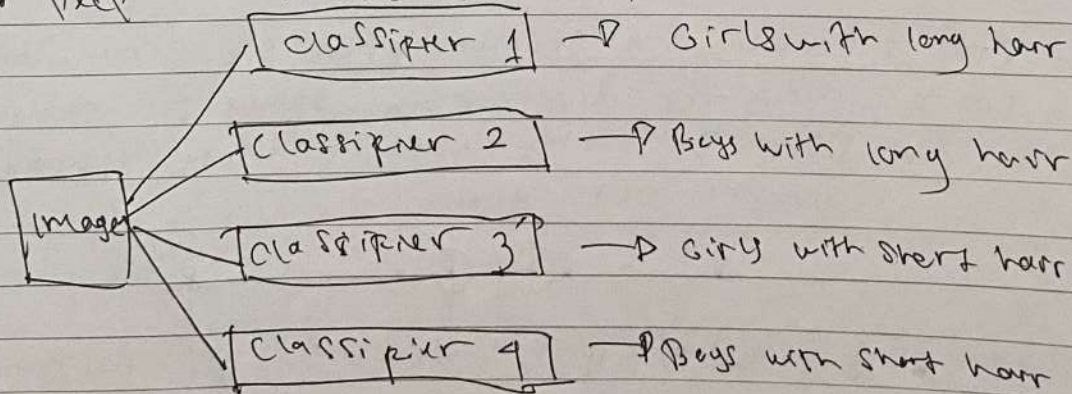 Classifier 1 → Girls with long hair
Classifier 2 → Boys with long hair
Image
Classifier 3 → Girls with short hair
Classifier 4 → Boys with short hair